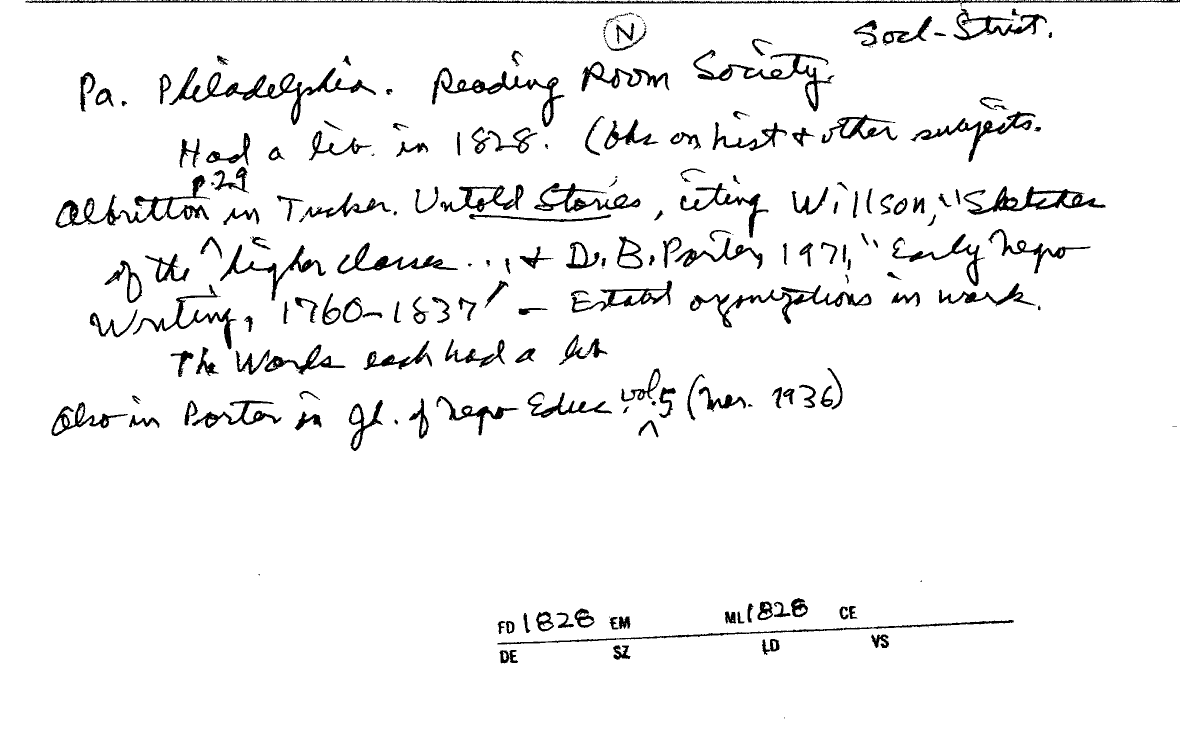 N
Socl-Strict.
Pa. Philadelphia. Reading Room Society
Had a lib. in 1828. (bks on hist & other subjects.
p.29
Albritton in Tucker. Untold Stories, citing Willson, "Sketches
of the ^ higher classes..., & D.B. Porter, 1971, "Early Negro
Writing, 1760-1837" - Establ organizations in work.
The Words each had a lib
Also in Porter in Jl. of Negro Educ. vol. 5 (1936)
FD 1828 EM ML 1828 CE
DE SZ LD VS